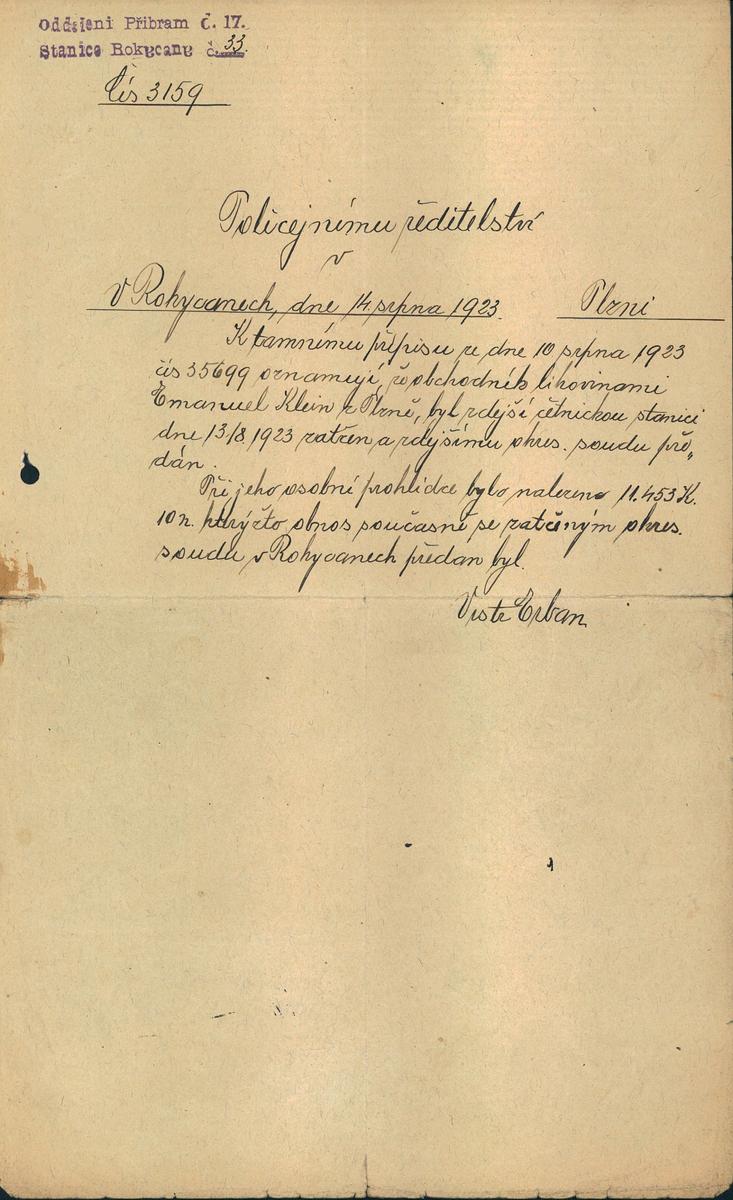 Oddělení Příbram č. 17.
Stanice Rokycany č. 33.
Čís 3159
Policejnímu ředitelství
v
V Rokycanech, dne 14. srpna 1923. Plzni
K tamnímu přípisu ze dne 10 srpna 1923
čís 35699 oznamuji, že obchodník lihovinami
Emanuel Klein z Plzně, byl zdejší četnickou stanicí
dne 13/8 1923 zatčen a zdejšímu okres. soudu pře„
dán.
Při jeho osobní prohlídce bylo nalezeno 11.453 K.
10 h. kterýžto obnos současně se zatčeným okres.
soudu v Rokycanech předán byl.
Vrstr Erban